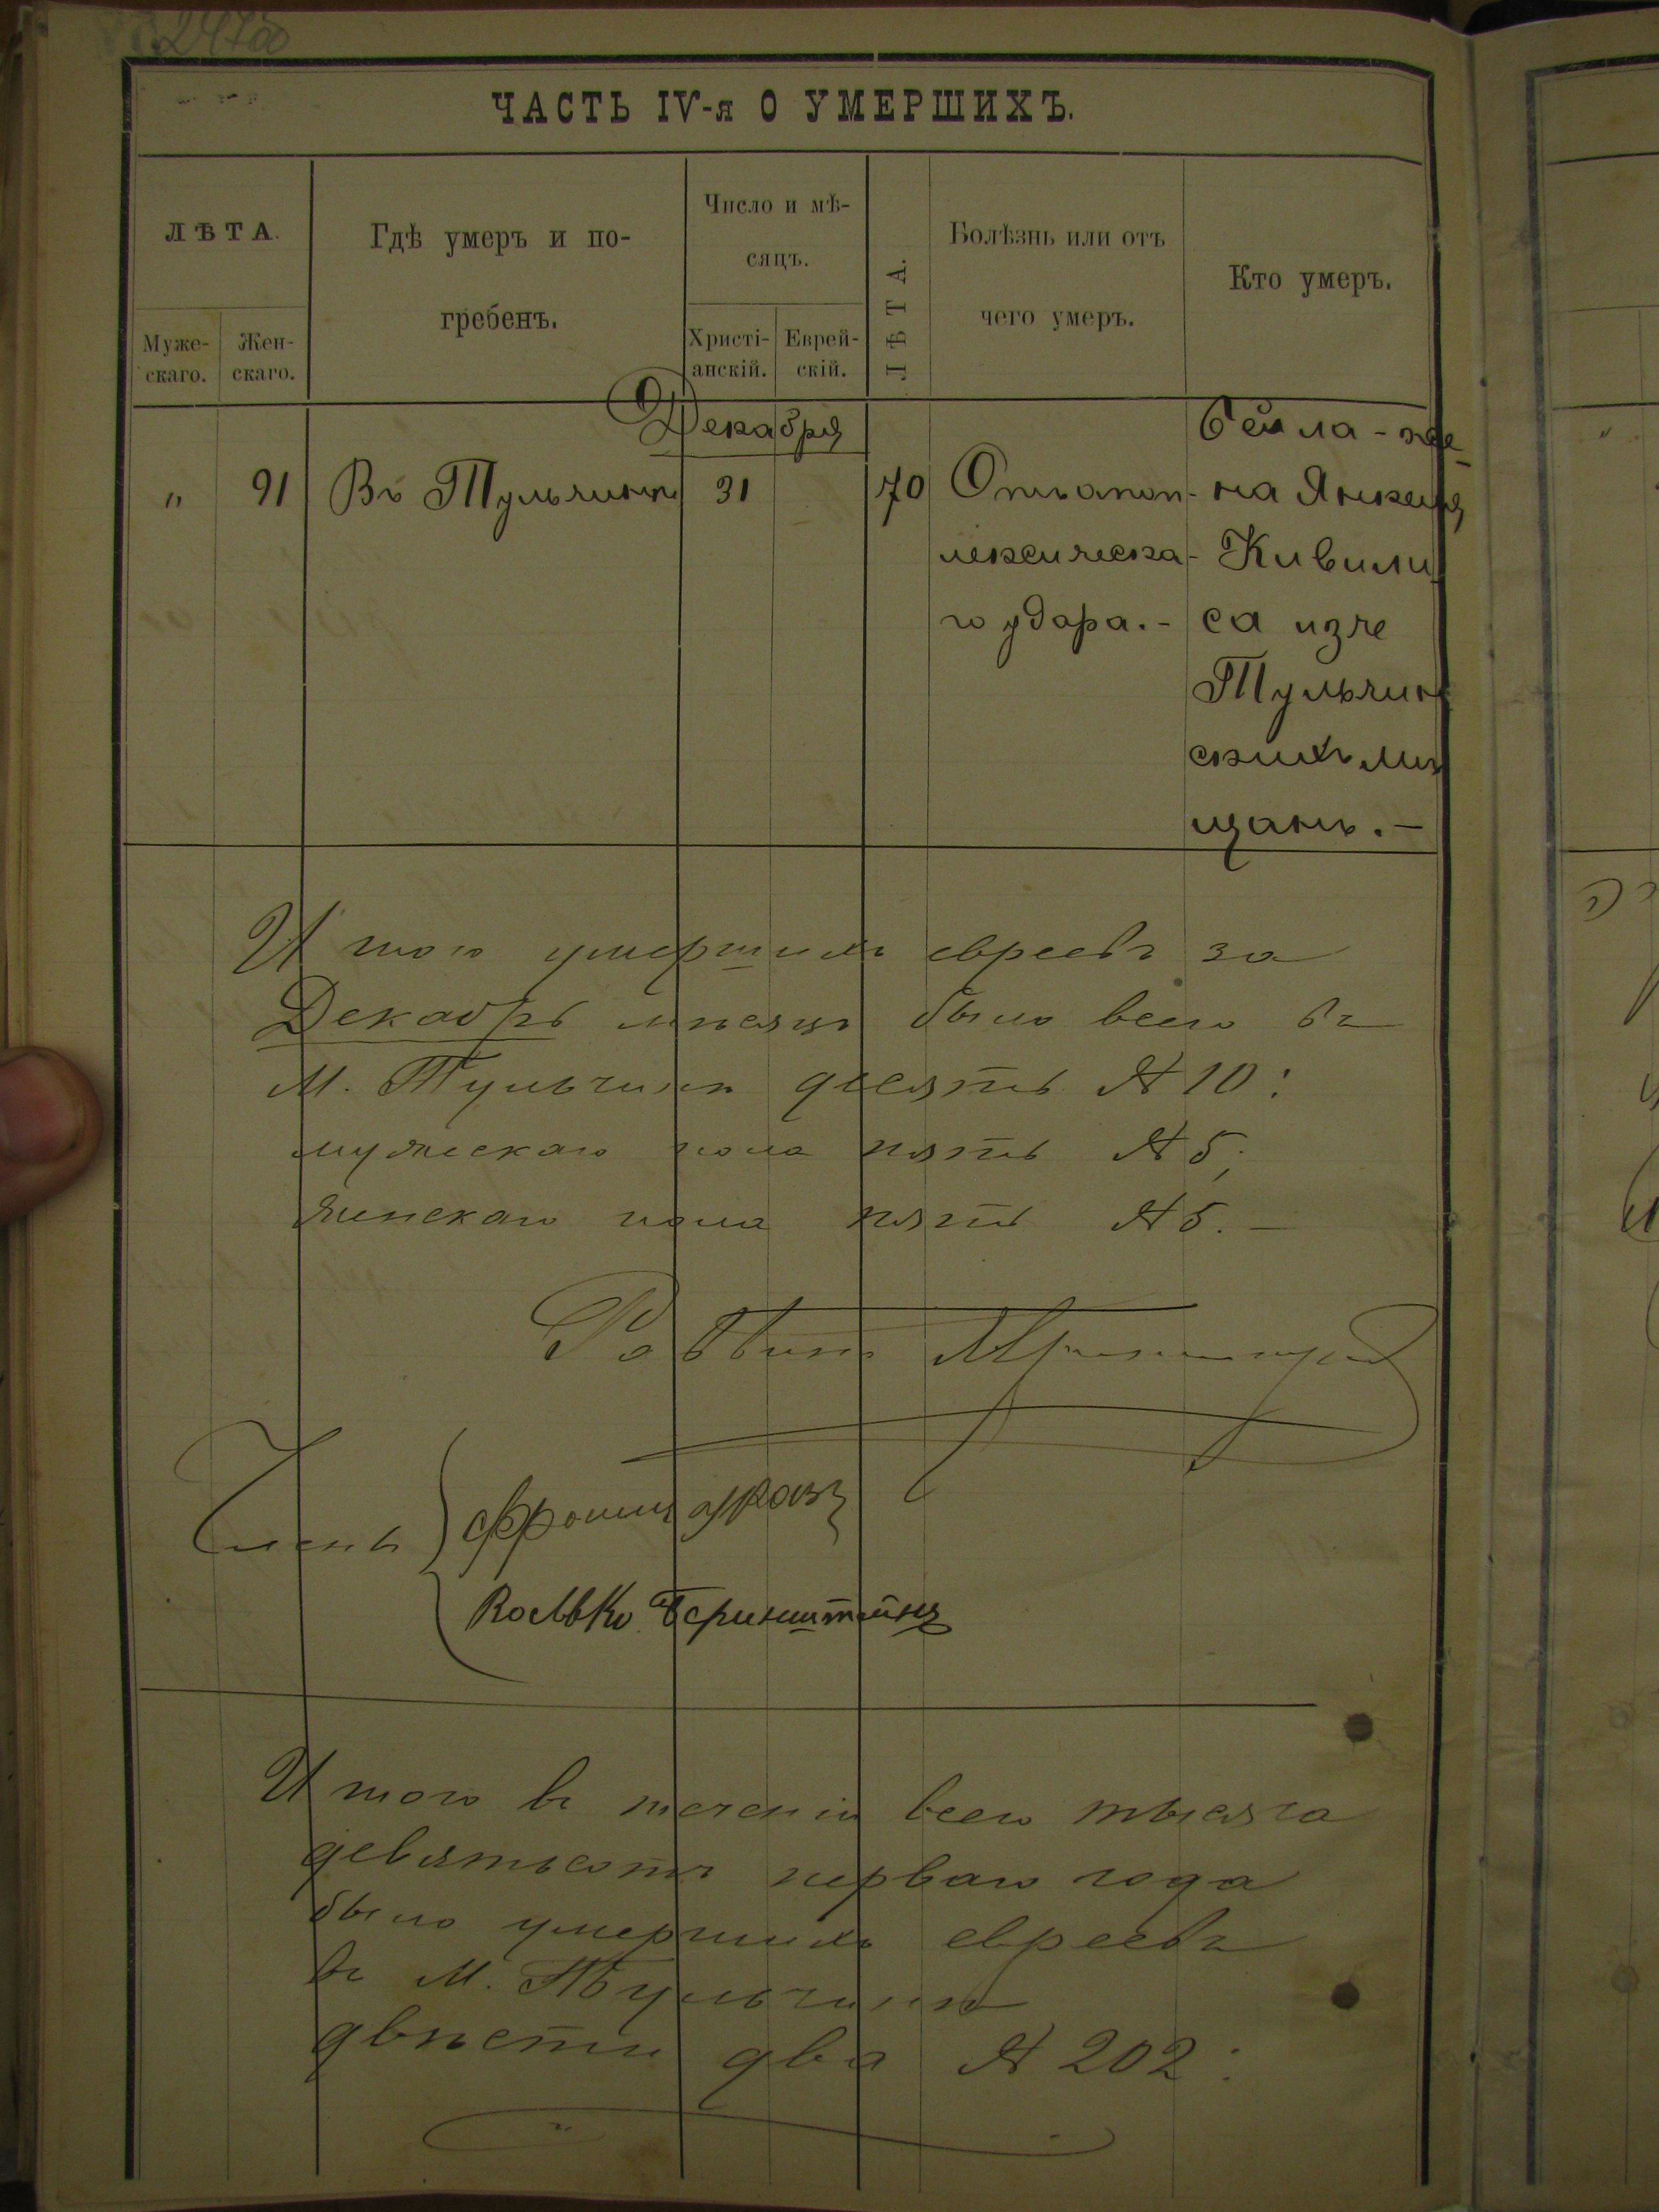 ЧАСТЬ IV-я О УМЕРШИХЪ.
ЛѢТА.
Муже-
скаго.
Жен-
скаго.
Гдѣ умеръ и по-
гребенъ.
Число и мѣ-
сяцъ.
Христі-
анскій.
Еврей-
скій.
ЛѢТА.
Болѣзнь или отъ
чего умеръ.
Кто умеръ.
Декабря
„ 91 Въ Тульчинѣ 31 70
Отъ апоп-
лексическа-
го удара.-
Бейла-же-
на Янкеля
Кивили
са изъ
Тульчин
скихъ мѣ
щанъ.-
Итого умершихъ евреевъ за
Декабрь мѣсяцъ было всего въ
М. Тульчинѣ десять № 10:
мужескаго пола пять № 5;
женскаго пола пять № 5.-
Раввинъ
Члены
Фроим
Беринштейнъ
Итого въ теченіи всего тысяча
девятьсотъ перваго года
было умершихъ евреевъ
въ М. Тульчинѣ
двѣсти два № 202: